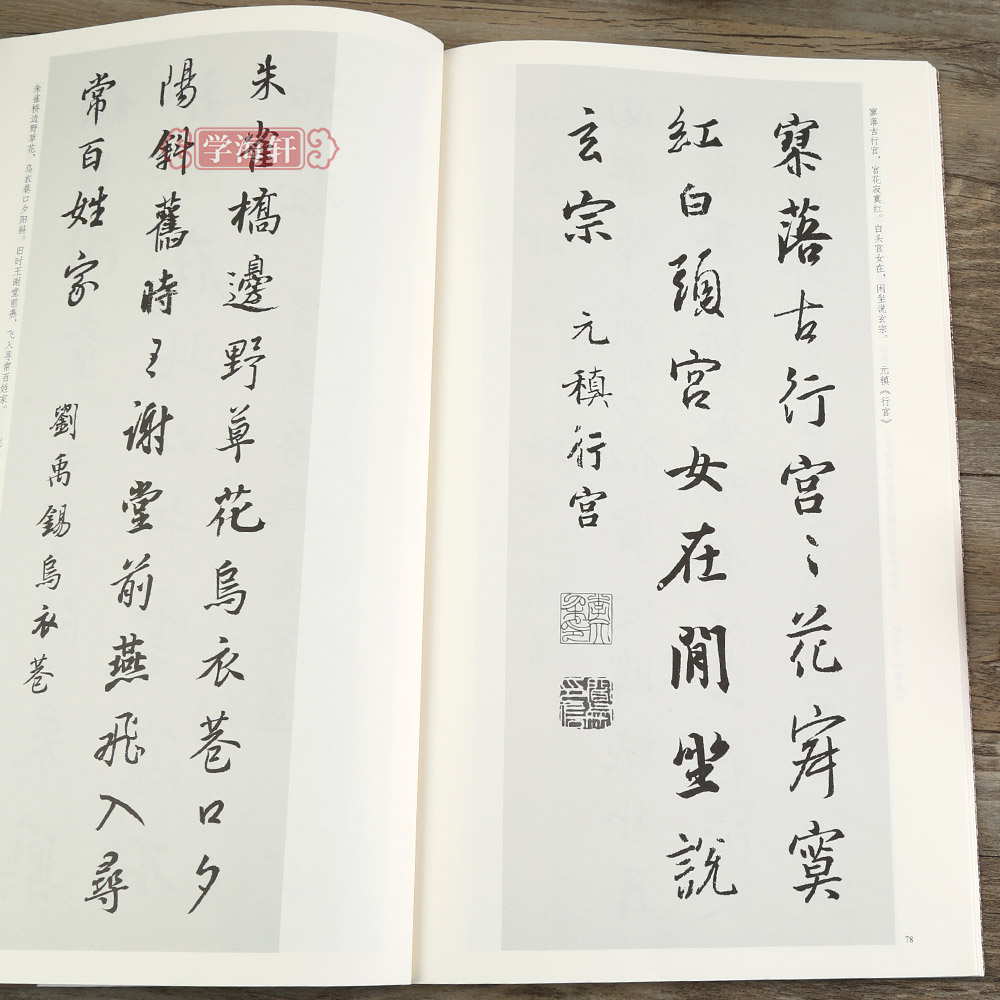 寥落古行宫，宫花寂寞红。白头宫女在，闲坐说玄宗。 元稹《行宫》
寥落古行宮〻花寂寞
紅白頭宮女在閒坐説
玄宗 元稹行宮
78
朱雀橋邊野草花烏衣巷口夕
陽斜舊時王謝堂前燕飛入尋
常百姓家 劉禹錫烏衣巷
朱雀桥边野草花，乌衣巷口夕阳斜。旧时王谢堂前燕，飞入寻常百姓家。
学海轩